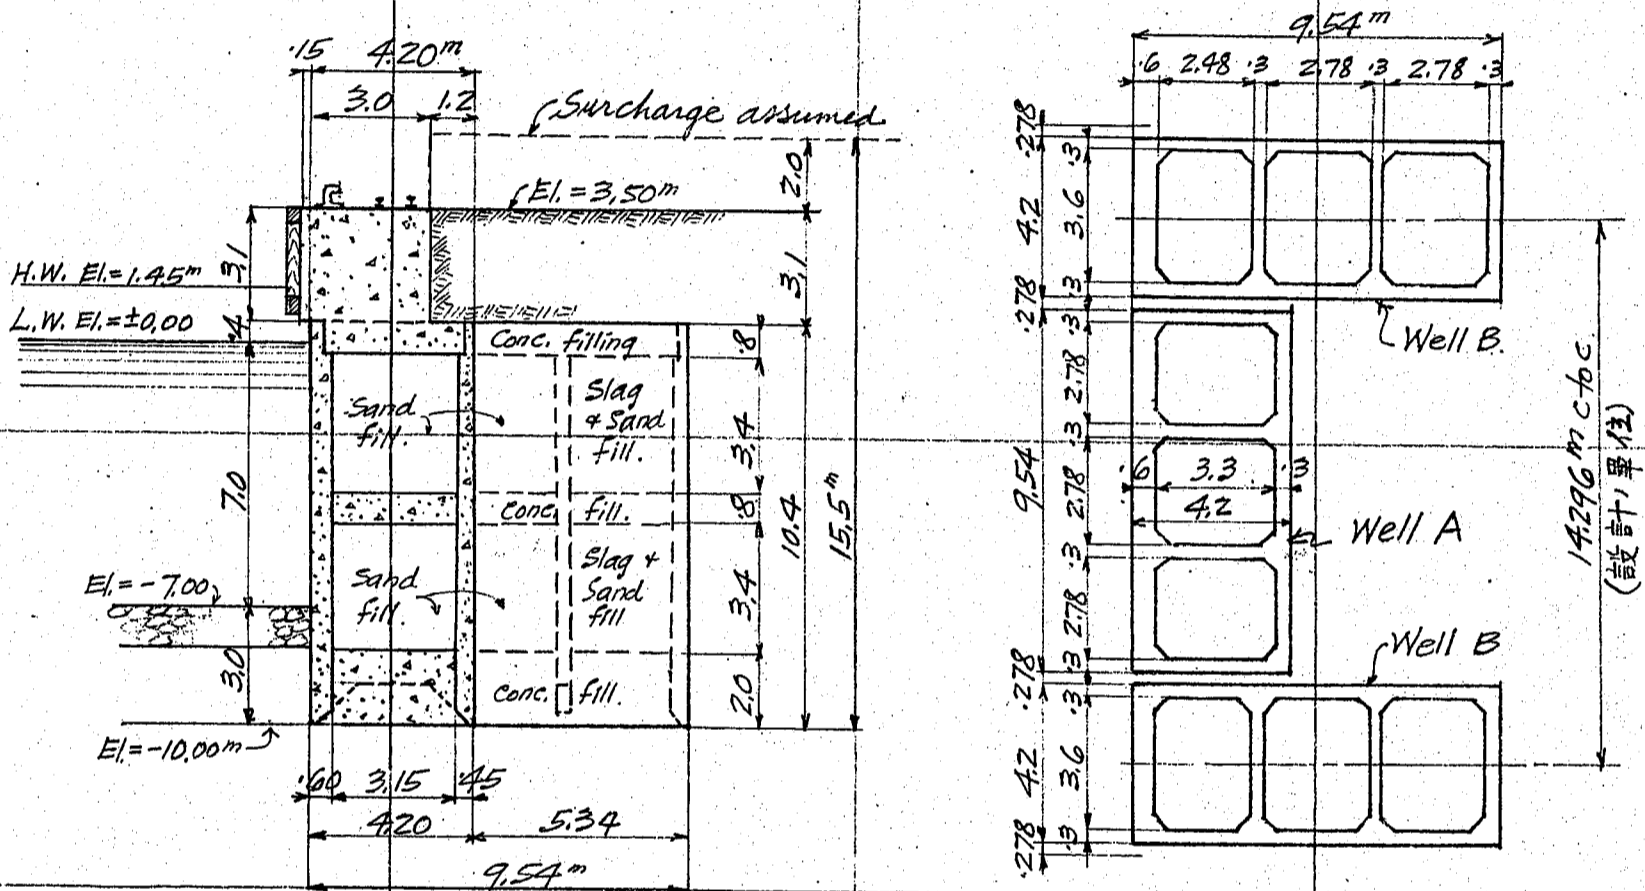 .15 4.20m
3.0 1.2
Surcharge assumed
El.=3.50m
2.0
3.1
3.1
H.W. El.=1.45m
L.W. El.=±0.00
.4
Conc. filling
.8
Sand fill.
Slag & Sand fill.
3.4
7.0
Conc. fill.
.8
10.4
15.5m
El.=-7.00
Sand fill.
Slag & Sand fill
3.4
3.0
Conc. fill.
2.0
El.=-10.00m
.60 3.15 .45
4.20 5.34
9.54m
9.54m
.6 2.48 .3 2.78 .3 2.78 .3
.278
.3
4.2
3.6
.278
.3
.3
Well B.
2.78
.3
9.54
.6 3.3 .3
4.2
2.78
Well A
.3
2.78
14.296m c to c
(設計單位)
.278
.3
.3
Well B
4.2
3.6
.278
.3